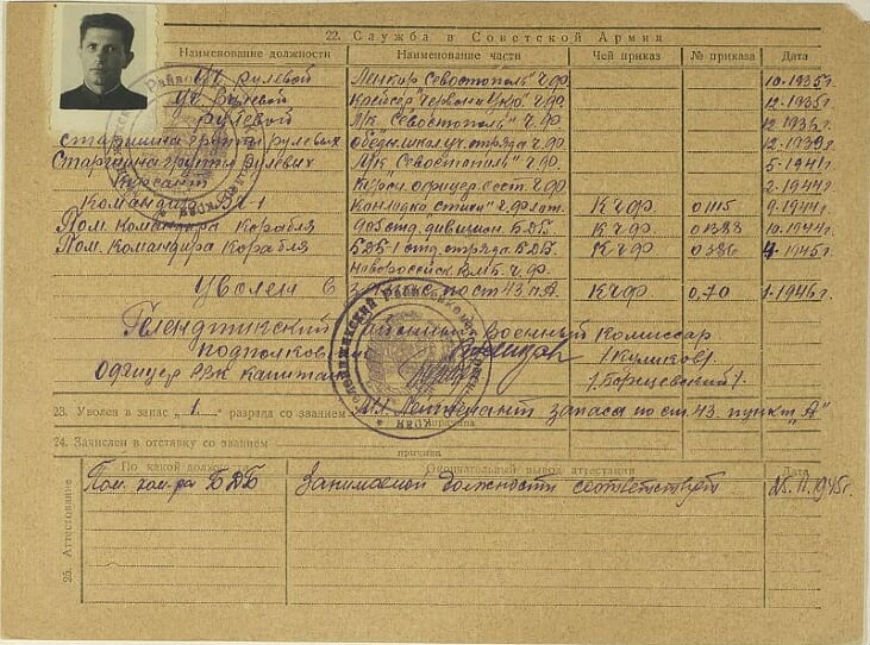 22. Служба в Советской Армии
Наименование должности Наименование части Чей приказ № приказа Дата
Уч. рулевой Линкор "Севостополь" Ч.Ф. 10-1935г.
Уч. рулевой Крейсер "Червона Укр" Ч.Ф. 12-1935г.
рулевой Л/К "Севостополь" Ч.Ф. 12-1936г.
старшина группы рулевых обедн. школ уч. отряда Ч.Ф. 12-1939г.
Старшина группы рулевых Л/К "Севостополь" Ч.Ф. 5-1941г.
Курсант Курсы офицер. сост. Ч.Ф. 2-1944г.
Командир Ч.Ф. К.Ч.Ф. 0115 9-1944г.
Пом. командира корабля дивизион БДБ К.Ч.Ф. 01388 10-1944г.
Пом. командира корабля БДБ 1 отд. отряда БДБ К.Ч.Ф. 0386 4-1945г.
Новороссийск. В.М.Б. Ч.Ф.
Уволен в запас по ст 43 п.А К.Ч.Ф. 0,70 1-1946г.
Геленджикский районный военный комиссар
подполковник /Куликов/.
Офицер РВК капитан /Борщевский/.
23. Уволен в запас „1" разряда со званием Мл. Лейтенант запаса по ст. 43. пункт „А"
24. Зачислен в отставку со званием
причина
25. Аттестование
По какой должн Окончательный вывод аттестации Дата
Пом. ком-ра БДБ Занимаемой должности соответствует 25.11.1945г.